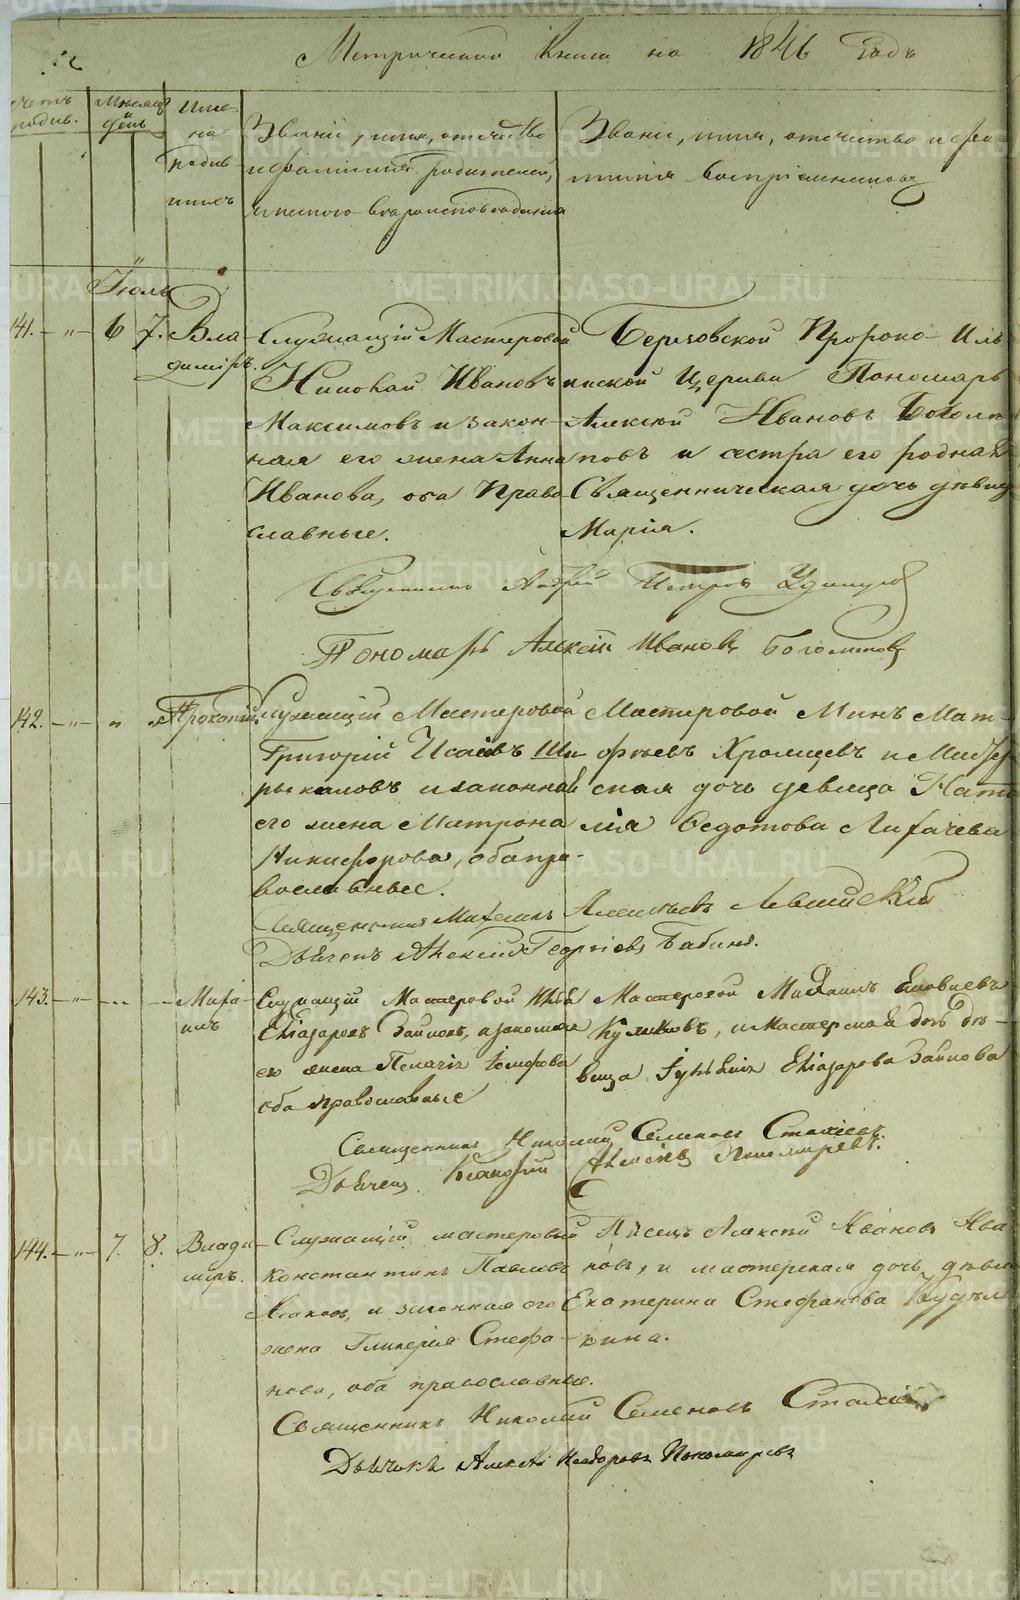 Метрической Книги на 1846 годъ
Счетъ родив.
Мѣсяцъ и день
Имена родившихся
Званіе, имя, отчество и фамилія родителей, и какого вѣроисповѣданія
Званіе, имя, отчество и фамилія воспріемниковъ
Іюль
141. — „ — 6 7. Владиміръ.
Служащій Мастеровой
Николай Ивановъ
Максимовъ и закон-
ная его жена Анна
Иванова, оба Право-
славные.
Березовской Пророко-Иль-
инской Церкви Пономарь
Алексѣй Ивановъ Боголѣ-
повъ и сестра его родная
Священническая дочь дѣвица
Марія.
Священникъ Андрей Петровъ
Пономарь Алексѣй Ивановъ Боголѣповъ
142. — „ — „ „ Прокопій.
Служащій Мастеровой
Григорій Исаевъ Ши-
рыкаловъ и законная
его жена Матрона
Никифорова, оба пра-
вославные.
Мастеровой Минъ Мат-
фѣевъ Хромцевъ и Мастер-
ская дочь девица Ната-
лія Федотова Лихачева
Священникъ Михаилъ Алексѣевъ Левицкій
Дьячекъ Алексій Георгіевъ Бабинъ.
143. — „ — Миха-
илъ
Служащій Мастеровой
Еліазаровъ Зайковъ, и законная
его жена Пелагія
оба православные
Мастеровой Михаилъ
Куликовъ, и Мастерская дочь дѣ-
вица Еліазарова Зайкова
Священникъ Николай Семеновъ Стахіевъ
Дьячекъ Алексѣй Пономаревъ.
144. — „ — 7. 8. Влади-
міръ.
Служащій мастеровый
Константинъ Павловъ
и законная его
жена Гликерія Стефа-
нова, оба православные.
Писецъ Алексѣй Ивановъ Ива-
новъ, и мастерская дочь дѣвица
Екатерина Стефанова Кудель-
кина.
Священникъ Николай Семеновъ Стахіевъ
Дьячекъ Алексѣй Пономаревъ
METRIKI.GASO-URAL.RU